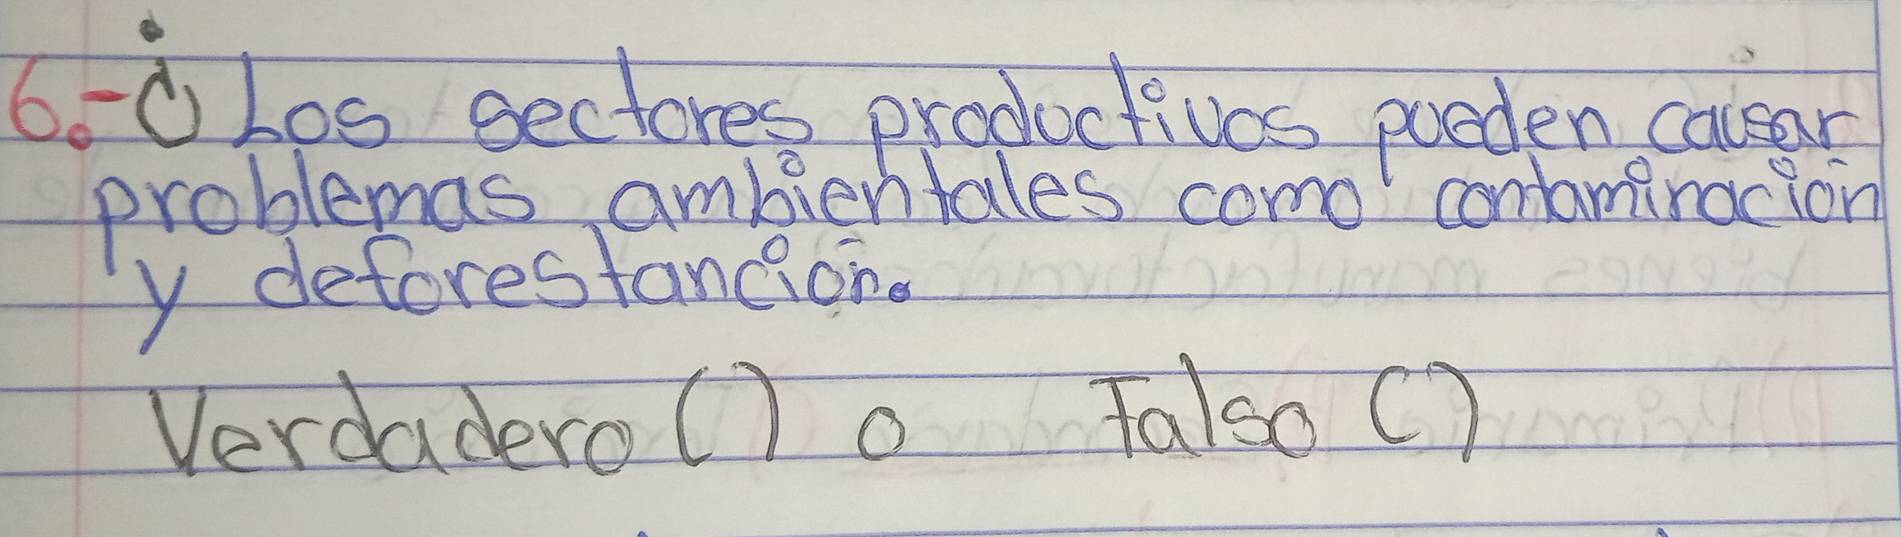 6.- Los sectores productivos pueden causar
problemas ambientales como contaminación
y deforestanción.
Verdadero () o Falso ()